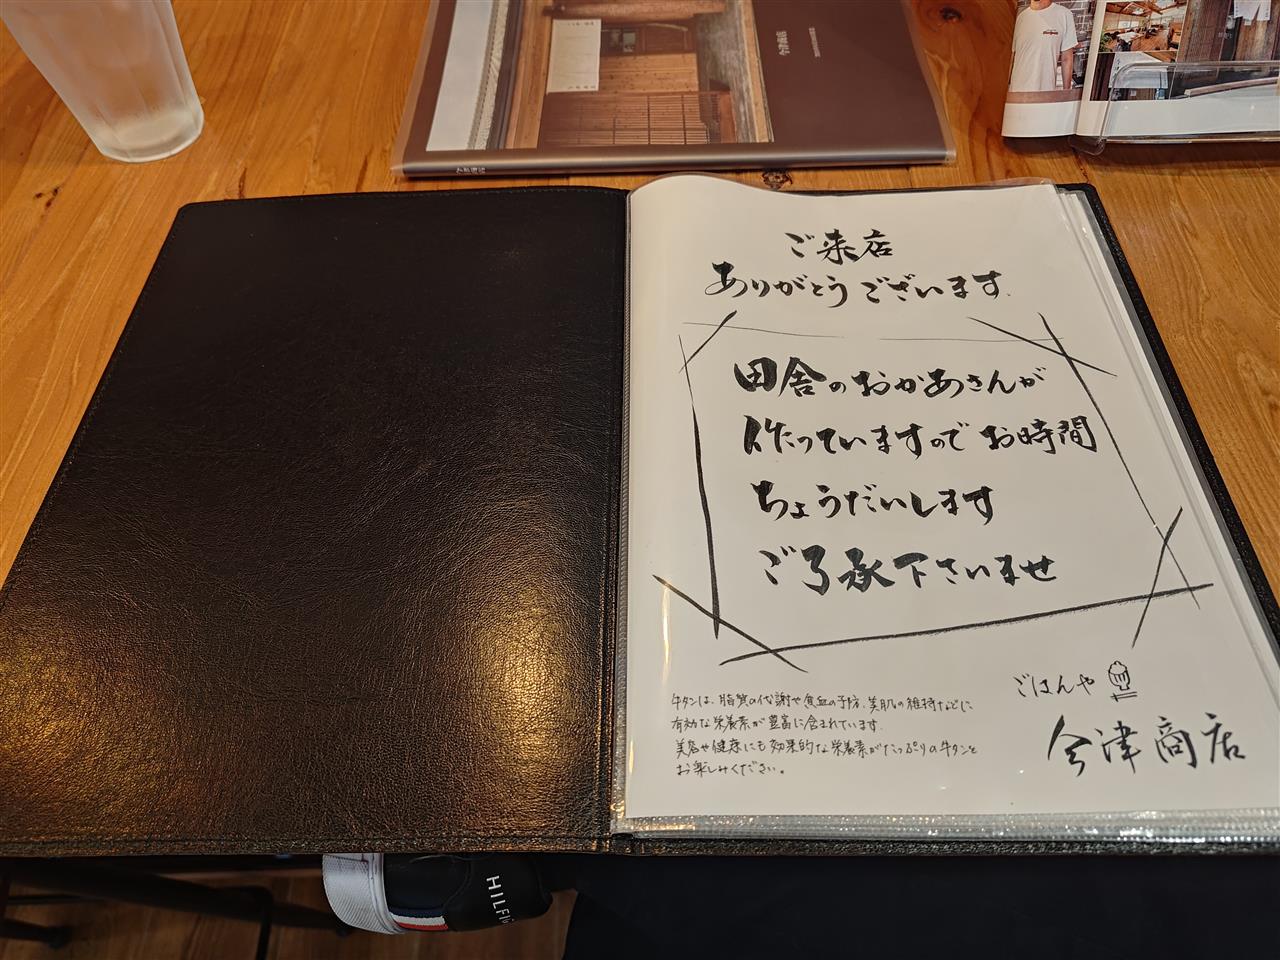 今津商店
ご来店
ありがとうございます.
田舎のおかあさんが
作っていますのでお時間
ちょうだいします
ご了承下さいませ
牛タンは、脂質の代謝や貧血の予防、美肌の維持などに
有効な栄養素が豊富に含まれています.
美容や健康にも効果的な栄養素がたっぷりの牛タンを
お楽しみください。
ごはんや
今津商店
HILFI